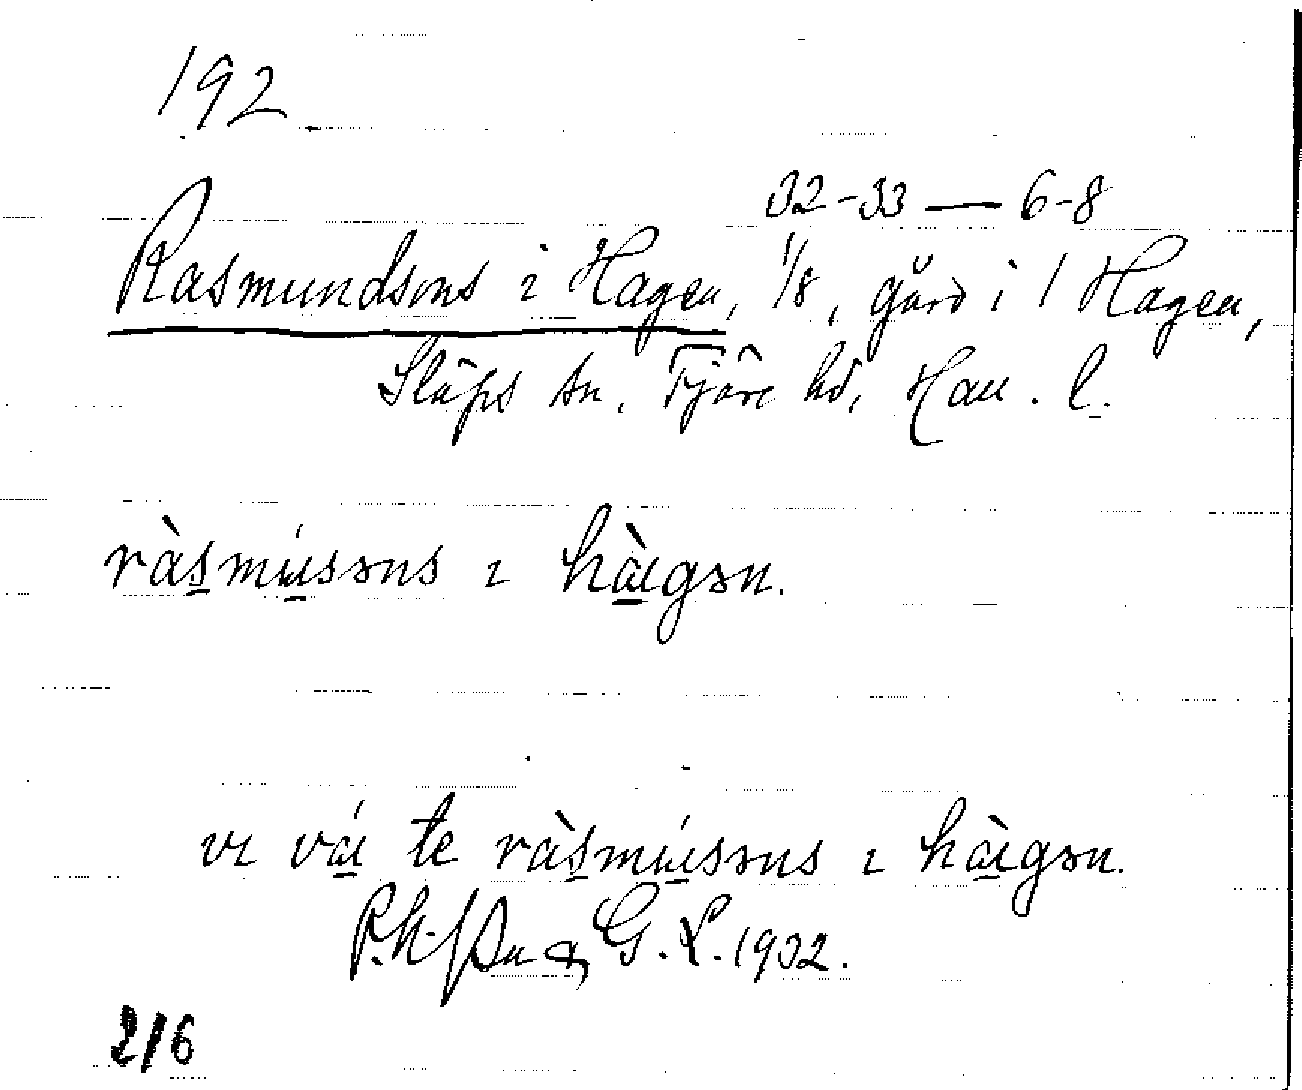 192
32-33 — 6-8
Rasmundsons i Hagen, 1/8, gård i 1 Hagen,
Släps sn. Fjäre hd, Hall. l.
ràsmúsəns ɩ hàgən.
vɩ vá te ràsmúsəns ɩ hàgən.
G. L. 1932.
216